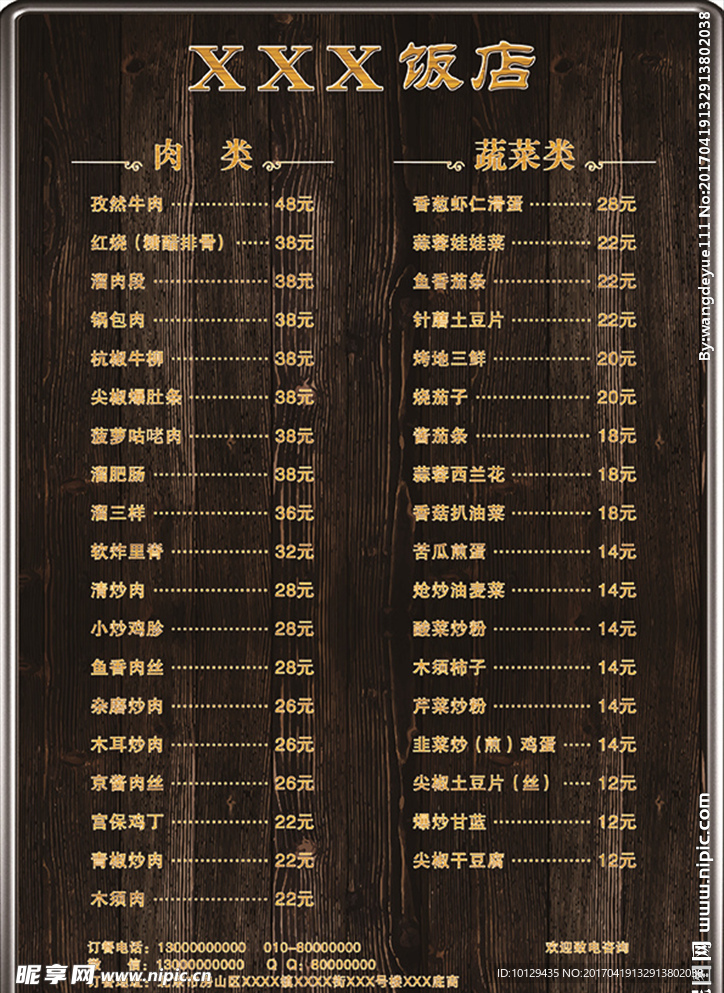 XXX饭店
肉 类
孜然牛肉 48元
红烧（糖醋排骨） 38元
溜肉段 38元
锅包肉 38元
杭椒牛柳 38元
尖椒爆肚条 38元
菠萝咕咾肉 38元
溜肥肠 38元
溜三样 36元
软炸里脊 32元
清炒肉 28元
小炒鸡胗 28元
鱼香肉丝 28元
杂磨炒肉 26元
木耳炒肉 26元
京酱肉丝 26元
宫保鸡丁 22元
青椒炒肉 22元
木须肉 22元
蔬菜类
香葱虾仁滑蛋 28元
蒜蓉娃娃菜 22元
鱼香茄条 22元
针蘑土豆片 22元
烤地三鲜 20元
烧茄子 20元
酱茄条 18元
蒜蓉西兰花 18元
香菇扒油菜 18元
苦瓜煎蛋 14元
炝炒油麦菜 14元
酸菜炒粉 14元
木须柿子 14元
芹菜炒粉 14元
韭菜炒（煎）鸡蛋 14元
尖椒土豆片（丝） 12元
爆炒甘蓝 12元
尖椒干豆腐 12元
订餐电话：13000000000 010-80000000 欢迎致电咨询
微 信：13000000000 Q Q：80000000
订餐地址：房山区XXXX镇XXXX街XXX号楼XXX底商
昵享网 www.nipic.cn
ID:10129435 NO:20170419132913802038
By:wangdeyue111 No:20170419132913802038
www.nipic.com